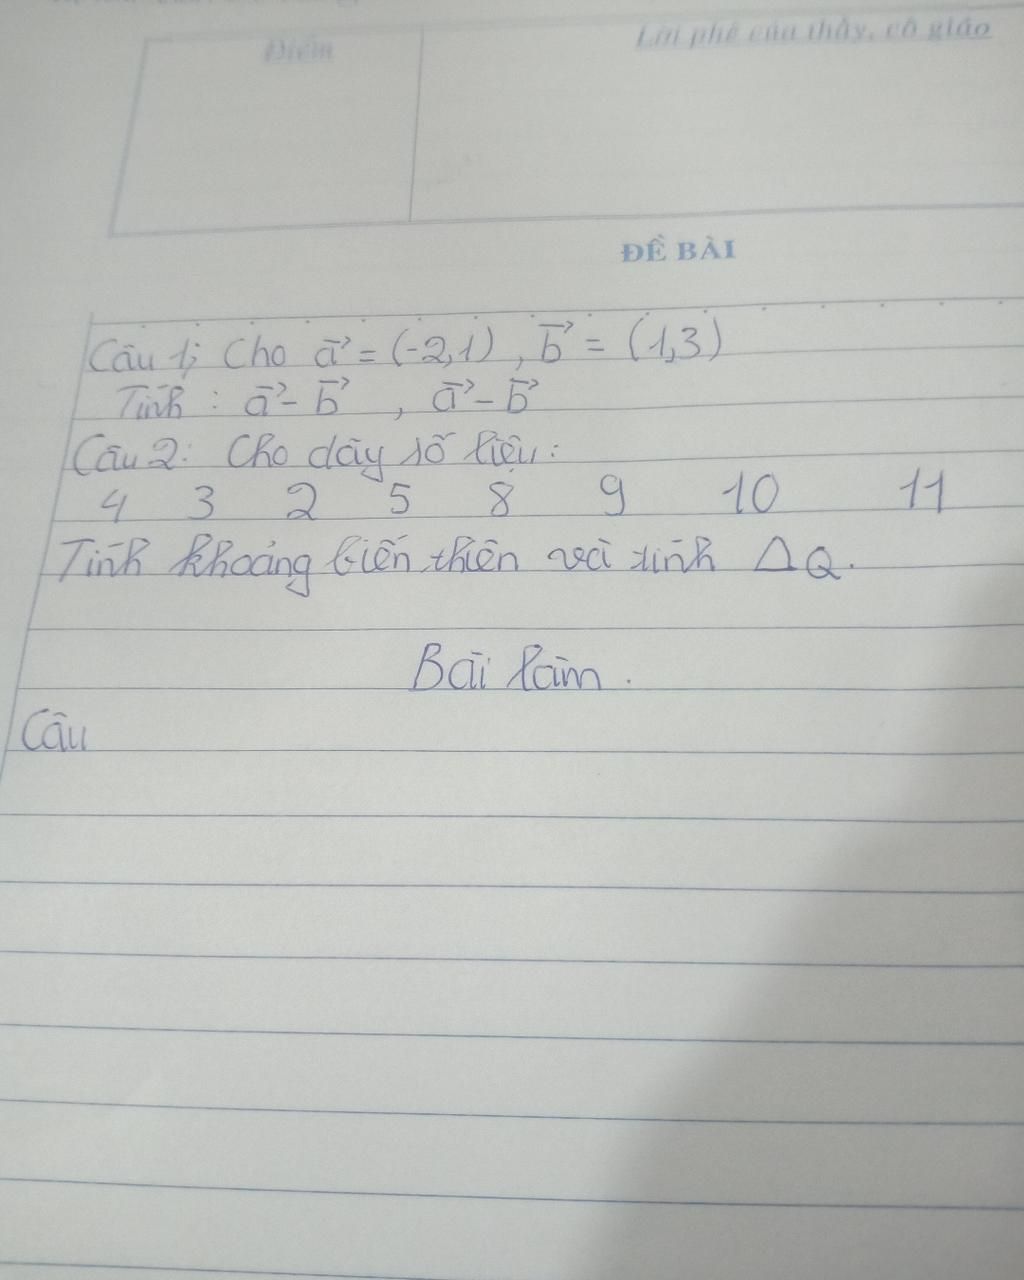 Điểm
Lời phê của thầy, cô giáo
ĐỀ BÀI
Câu 1; Cho a⃗ = (-2,1), b⃗ = (1,3)
Tính : a⃗ - b⃗ , a⃗ - b⃗
Câu 2: Cho dãy số liệu:
4 3 2 5 8 9 10 11
Tính khoảng biến thiên và tính ΔQ.
Bài làm.
Câu